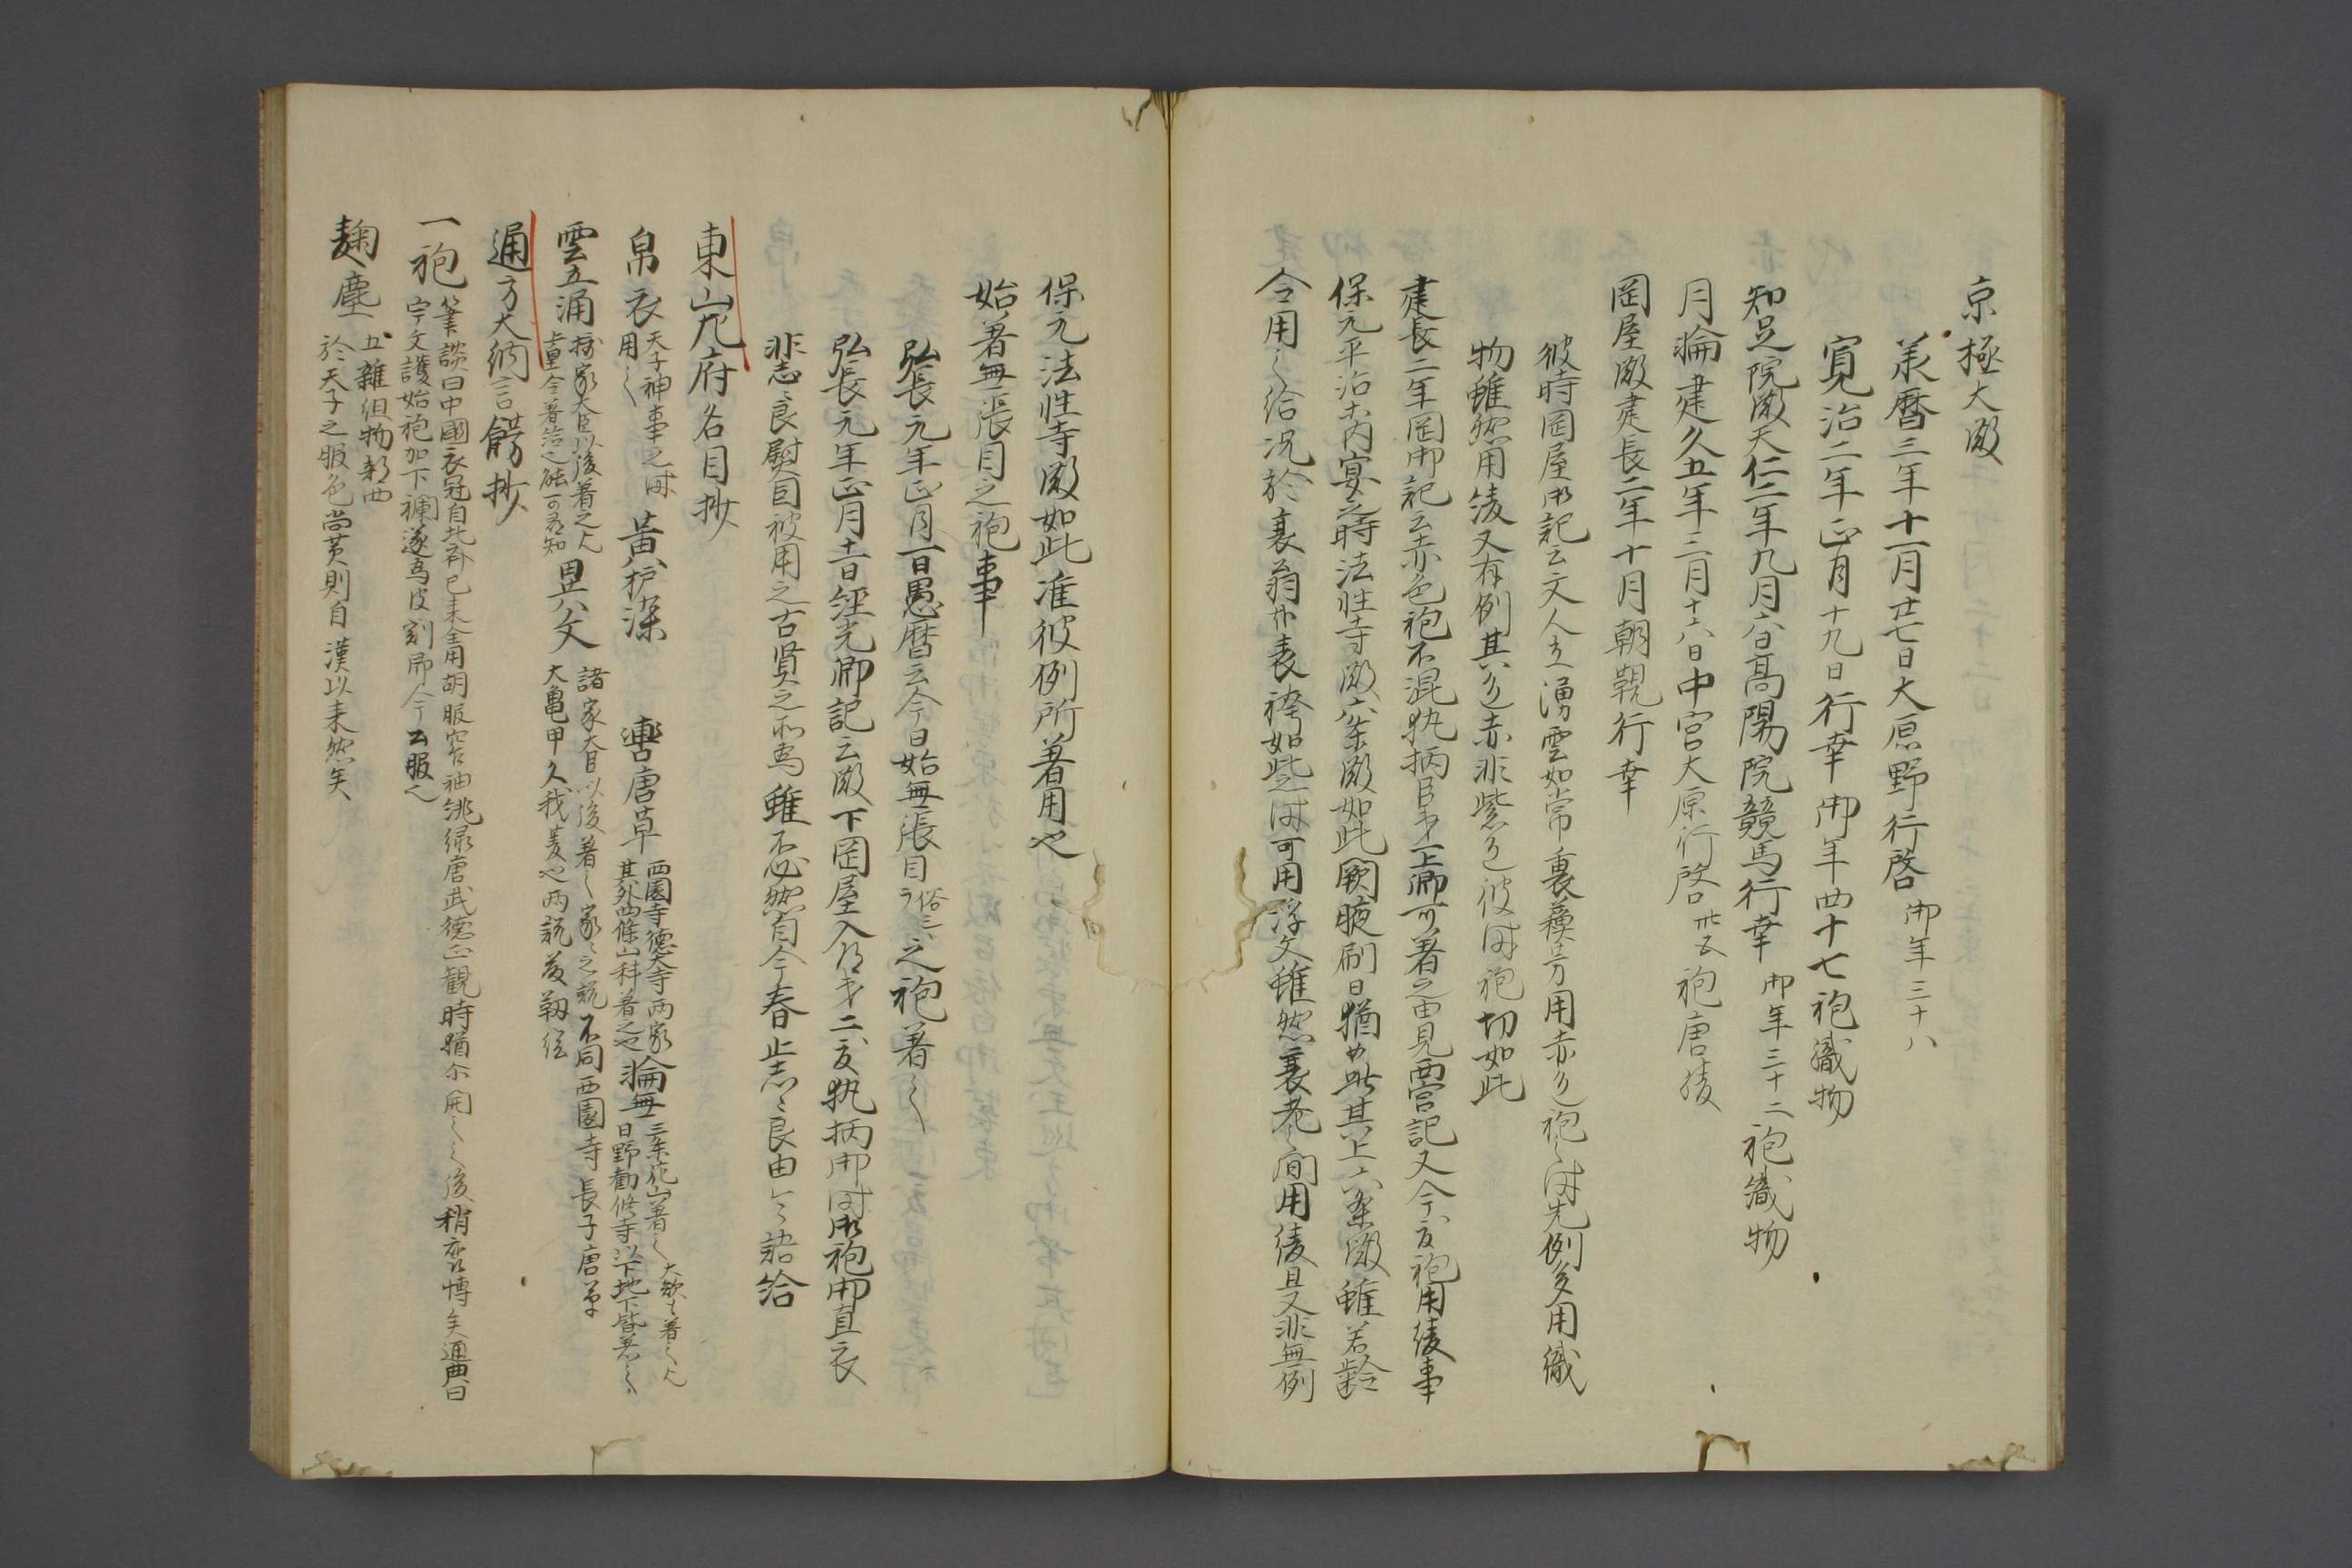 京極大殿
承暦三年十一月廿七日大原野行啓 御年三十八
寛治二年正月十九日行幸 御年四十七 袍織物
知足院殿天仁二年九月六日高陽院競馬行幸 御年三十二 袍織物
月輪建久五年三月十六日中宮大原行啓 卅五 袍唐綾
岡屋殿建長二年十月朝覲行幸
彼時岡屋御記云文人立湧雲如常裏 用赤色袍之時先例多用織
物雖然用綾又有例其色赤非紫色彼時袍切如此
建長二年岡御記云赤色袍不混執柄 上卿可著之由見西宮記又今度袍用綾事
保元平治内宴之時法性寺殿六条殿如此闕腋刷日猶如此其上六条殿雖若齢
令用之給况於衰翁哉表袴如此時可用浮文雖然衰老之間用綾且又非無例
保元法性寺殿如此准彼例所著用也
始著無張目之袍事
弘長元年正月一日愚暦云今日始無張目 俗三ラ 之袍著之
弘長元年正月十一日経光卿記云殿下岡屋入道 二度執柄御時御袍御直衣
非志々良熨目被用之古賢之所為雖不必然自今春止志々良由 語給
東山左府名目抄
帛衣 天子神事之時用之 黄櫨染 轡唐草 西園寺徳大寺両家其外四條山科著之也 輪無 三条花山著之 大炊も著之 日野勧修寺以下地下皆著之
雲立涌 摂家大臣以後著之 異文 諸家大臣以後著之家々之説不同西園寺長子唐草大亀甲久我菱也両説
通方大納言餝抄
一袍 筆談曰中國衣冠自北斉已来全用胡服窄袖緋緑唐武徳正観時猶尓開之後稍 博矣通典曰宇文護始袍加下襴遂為後制即今之公服
麹塵 五雑俎物部四 於天子之服色尚黄則自漢以来然矣